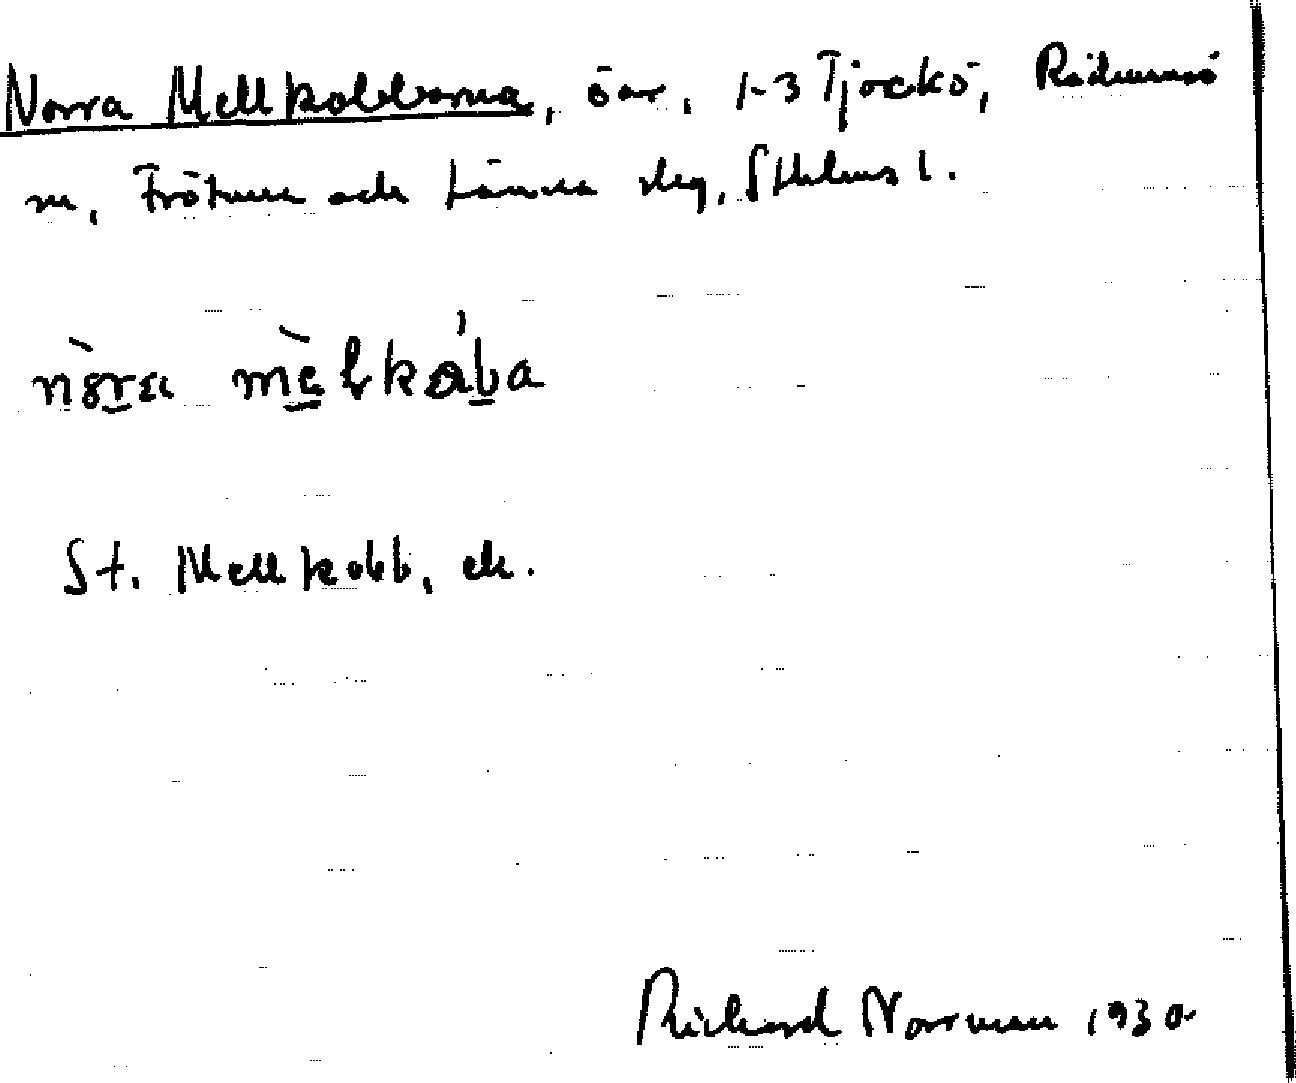 Norra Mellkobbarna, öar, 1-3 Tjockö, Rådmansö
sn, Frötuna och Länna skg, Sthlms l.
nòra mèlkåba
St. Mellkobb, ek.
Richard Norrman 1930